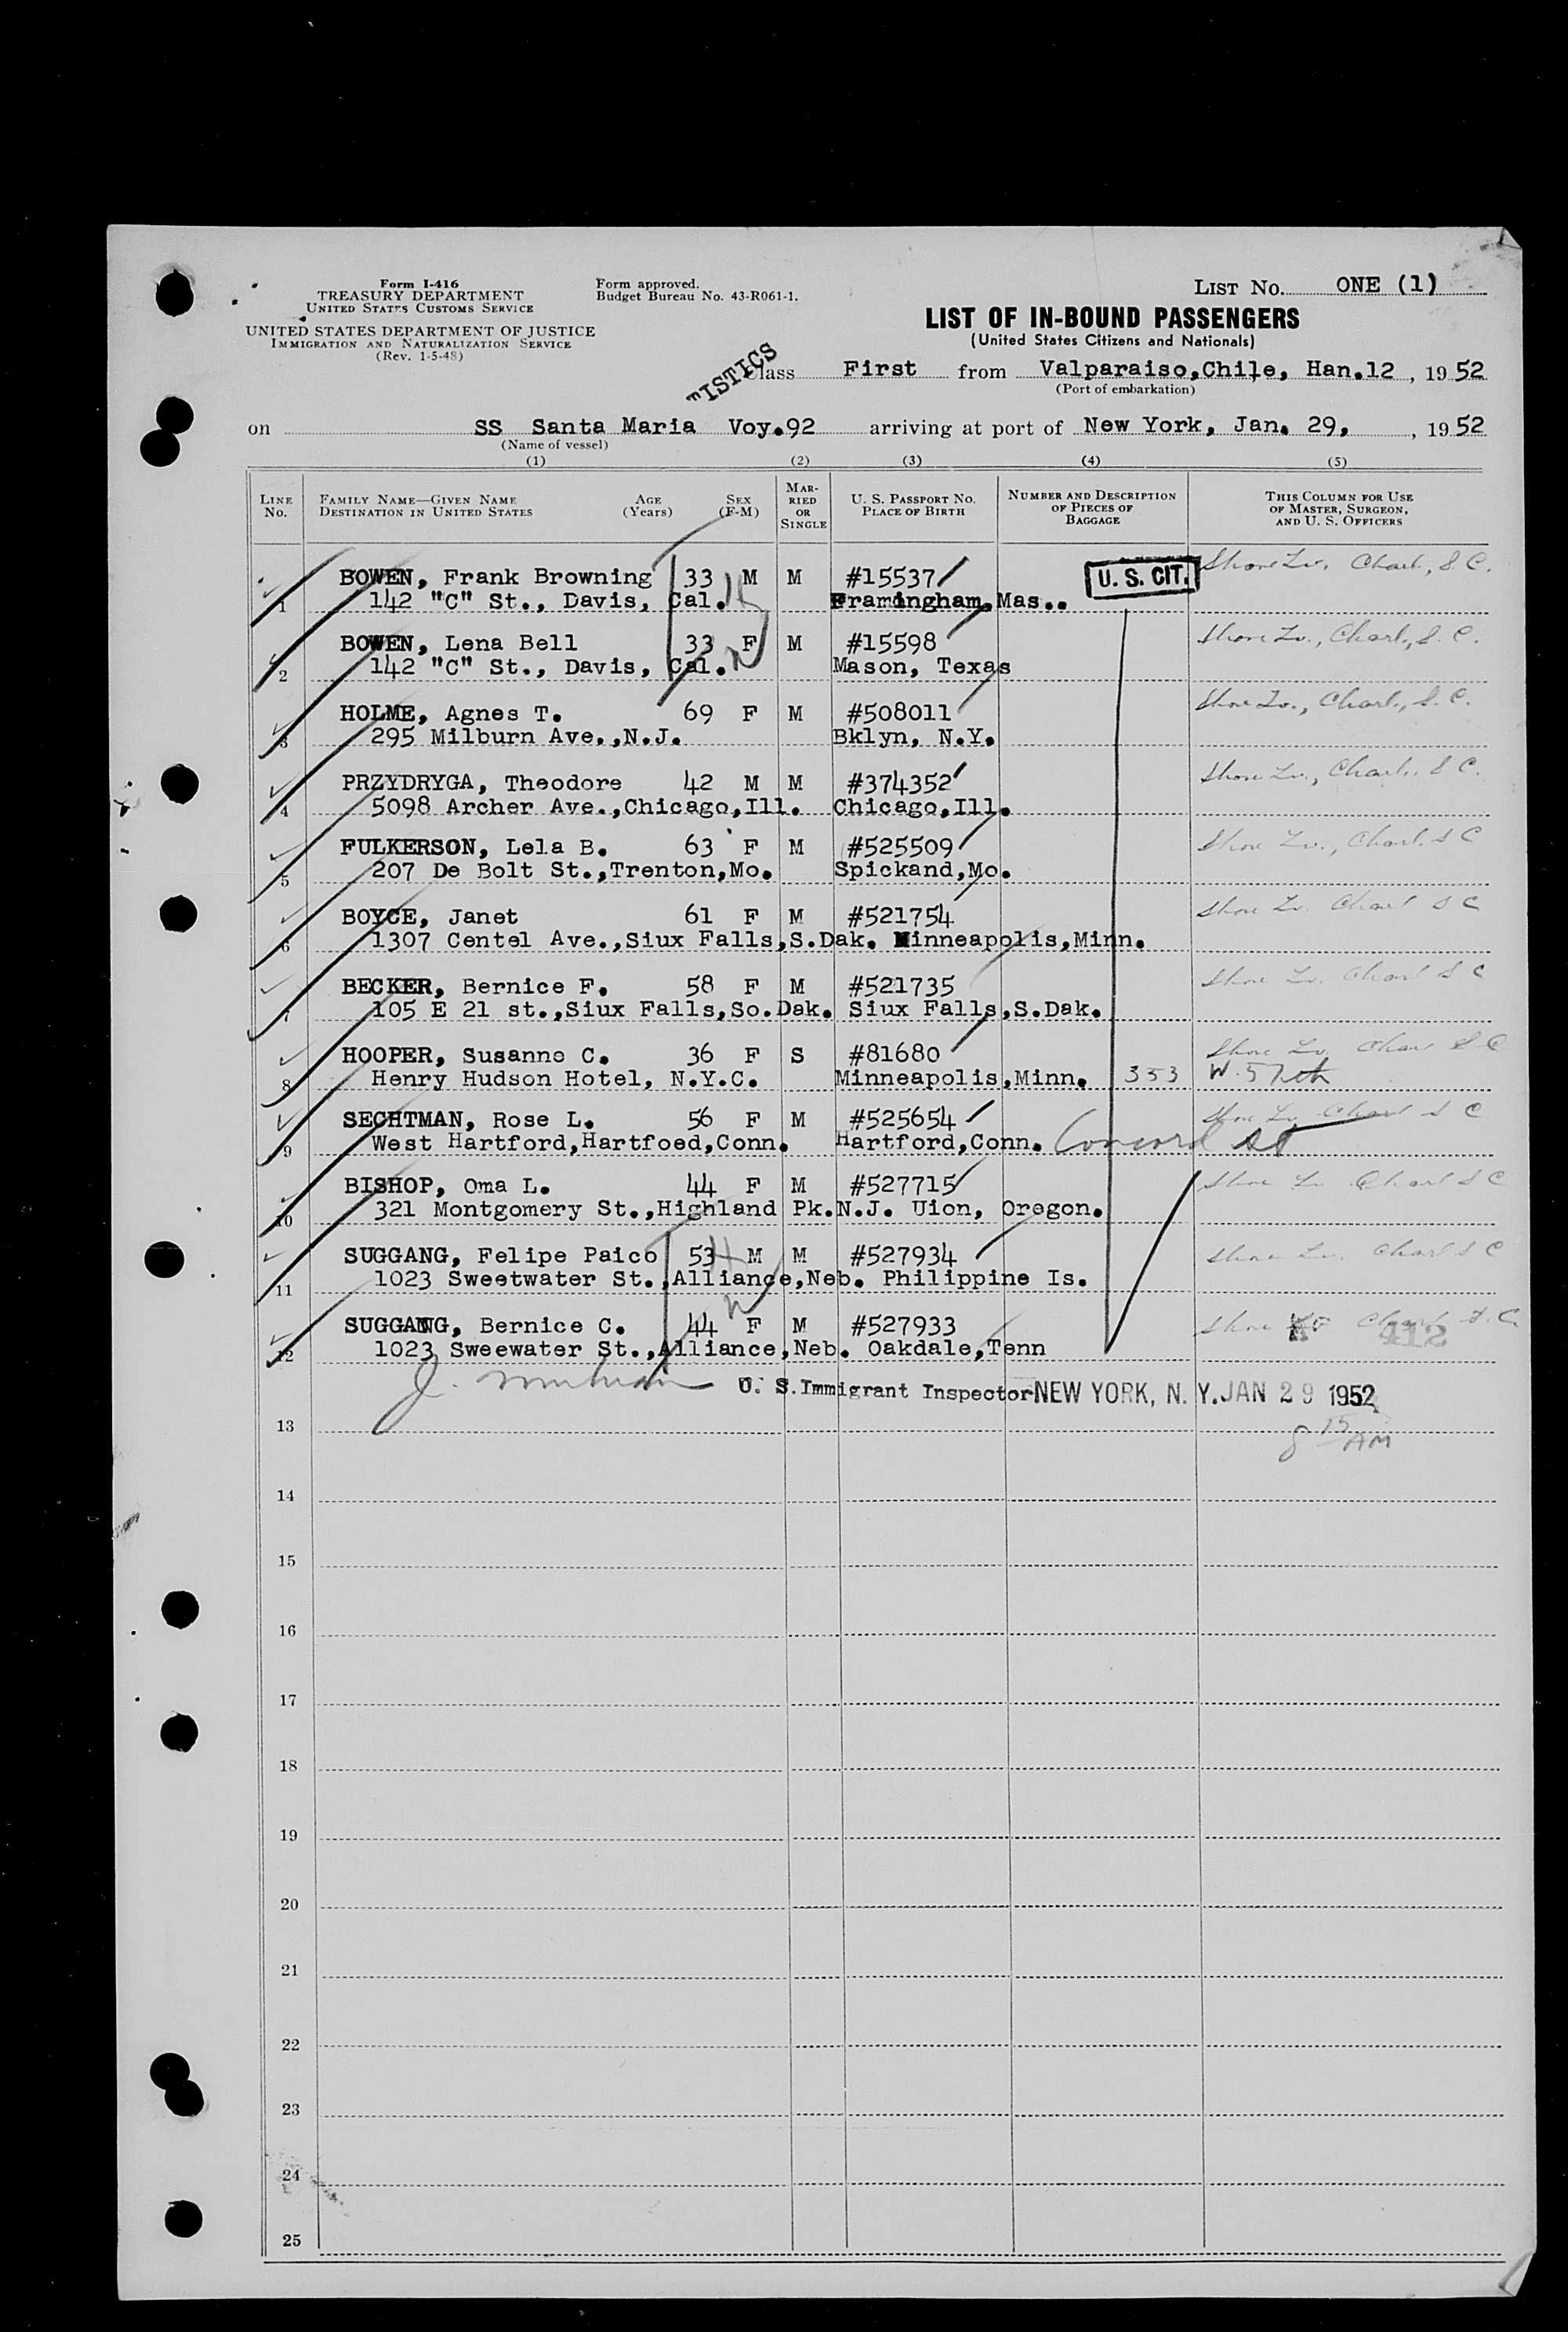 Form I-416
TREASURY DEPARTMENT
UNITED STATES CUSTOMS SERVICE
UNITED STATES DEPARTMENT OF JUSTICE
IMMIGRATION AND NATURALIZATION SERVICE
(Rev. 1-5-48)
Form approved.
Budget Bureau No. 43-R061-1.
LIST NO. ONE (1)
LIST OF IN-BOUND PASSENGERS
(United States Citizens and Nationals)
TISTICS
Class First from Valparaiso,Chile, Han.12 , 19 52
(Port of embarkation)
on SS Santa Maria Voy.92 arriving at port of New York, Jan. 29, , 19 52
(Name of vessel)
(1) (2) (3) (4) (5)
LINE NO. FAMILY NAME—GIVEN NAME DESTINATION IN UNITED STATES AGE (Years) SEX (F-M) MARRIED OR SINGLE U. S. PASSPORT NO. PLACE OF BIRTH NUMBER AND DESCRIPTION OF PIECES OF BAGGAGE THIS COLUMN FOR USE OF MASTER, SURGEON, AND U. S. OFFICERS
BOWEN, Frank Browning 33 M M #15537 U. S. CIT. Shore Lv. Charl., S.C.
1 142 "C" St., Davis, Cal. Framingham,Mas..
BOWEN, Lena Bell 33 F M #15598 Shore Lv., Charl., S.C.
2 142 "C" St., Davis, Cal. Mason, Texas
HOLME, Agnes T. 69 F M #508011 Shore Lv., Charl., S.C.
3 295 Milburn Ave.,N.J. Bklyn, N.Y.
PRZYDRYGA, Theodore 42 M M #374352 Shore Lv., Charl. S C.
4 5098 Archer Ave.,Chicago,Ill. Chicago,Ill.
FULKERSON, Lela B. 63 F M #525509 Shore Lv., Charl. S C
5 207 De Bolt St.,Trenton,Mo. Spickand,Mo.
BOYCE, Janet 61 F M #521754 Shore Lv. Charl S C
6 1307 Centel Ave.,Siux Falls,S.Dak. Minneapolis,Minn.
BECKER, Bernice F. 58 F M #521735 Shore Lv. Charl S C
7 105 E 21 st.,Siux Falls,So.Dak. Siux Falls,S.Dak.
HOOPER, Susanne C. 36 F S #81680 Shore Lv. Charl S C
8 Henry Hudson Hotel, N.Y.C. Minneapolis,Minn. 353 W. 57th
SECHTMAN, Rose L. 56 F M #525654 Shore Lv. Charl S C
9 West Hartford,Hartfoed,Conn. Hartford,Conn. Concord St
BISHOP, Oma L. 44 F M #527715 Shore Lv Charl S C
10 321 Montgomery St.,Highland Pk.N.J. Uion, Oregon.
SUGGANG, Felipe Paico 53 M M #527934 Shore Lv. Charl S C
11 1023 Sweetwater St.,Alliance,Neb. Philippine Is.
SUGGANG, Bernice C. 44 F M #527933 Shore Charl S.C. 412
12 1023 Sweewater St.,Alliance,Neb. Oakdale,Tenn
J. U. S. Immigrant Inspector NEW YORK, N. Y. JAN 29 1952
8 15 AM
13
14
15
16
17
18
19
20
21
22
23
24
25